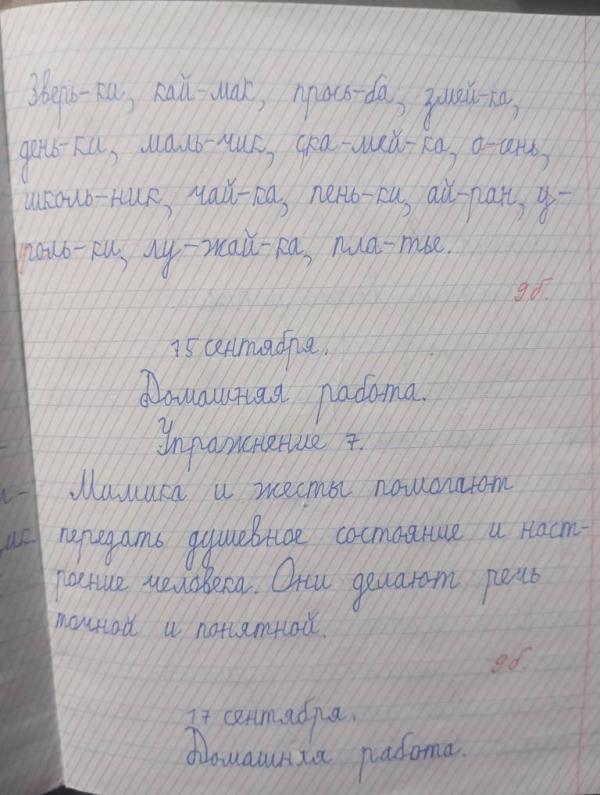 Зверь-ки, кай-мак, прось-ба, змей-ка,
день-ки, маль-чик, ска-мей-ка, о-сень,
школь-ник, чай-ка, пень-ки, ай-ран, у-
роль-ки, лу-жай-ка, пла-тье.
9б.
15 сентября.
Домашняя работа.
Упражнение 7.
Мимика и жесты помогают
передать душевное состояние и наст-
роение человека. Они делают речь
точной и понятной.
9б.
17 сентября.
Домашняя работа.